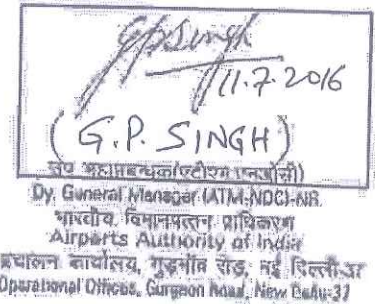 GPSingh
11.7.2016
(G.P. SINGH)
Dy. General Manager (ATM-NOC)-NR.
भारतीय विमानपत्तन प्राधिकरण
Airports Authority of India
प्रचालन कार्यालय, गुड़गाँव रोड़, नई दिल्ली-37
Operational Offices, Gurgaon Road, New Delhi-37